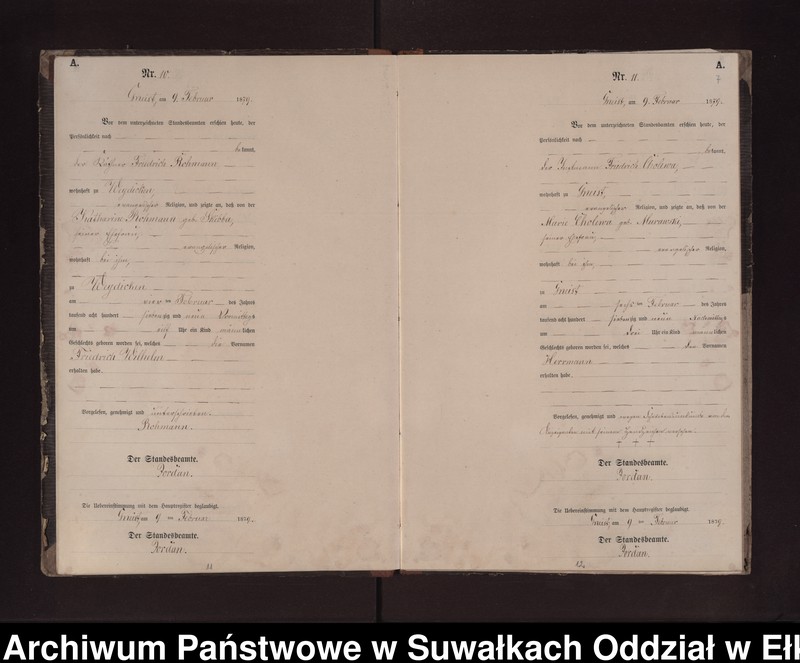 A.
Nr. 10.
am 9. Februar 1879.
Vor dem unterzeichneten Standesbeamten erschien heute, der
Persönlichkeit nach
bekannt,
der Friedrich Rohmann
wohnhaft zu
evangelischer Religion, und zeigte an, daß von der
Katharine Rohmann geb.
seiner Ehefrau,
evangelischer Religion,
wohnhaft bei ihm,
zu
am vier ten Februar des Jahres
tausend acht hundert siebenzig und neun Vormittags
um elf Uhr ein Kind männlichen
Geschlechts geboren worden sei, welches die Vornamen
Friedrich Wilhelm
erhalten habe.
Vorgelesen, genehmigt und unterschrieben.
Rohmann.
Der Standesbeamte.
Jordan.
Die Uebereinstimmung mit dem Hauptregister beglaubigt.
am 9. ten Februar 1879.
Der Standesbeamte.
Jordan.
11
A.
7
Nr. 11.
am 9. Februar 1879.
Vor dem unterzeichneten Standesbeamten erschien heute, der
Persönlichkeit nach
bekannt,
der Friedrich Cholewa,
wohnhaft zu
evangelischer Religion, und zeigte an, daß von der
Marie Cholewa geb. Murawski,
seiner Ehefrau,
evangelischer Religion,
wohnhaft bei ihm,
zu
am sechs ten Februar des Jahres
tausend acht hundert siebenzig und neun Nachmittags
um drei Uhr ein Kind männlichen
Geschlechts geboren worden sei, welches den Vornamen
Herrmann
erhalten habe.
Vorgelesen, genehmigt und wegen
mit seinem Handzeichen versehen.
† † †
Der Standesbeamte.
Jordan.
Die Uebereinstimmung mit dem Hauptregister beglaubigt.
am 9 ten Februar 1879.
Der Standesbeamte.
Jordan.
12.
Archiwum Państwowe w Suwałkach Oddział w Ełk